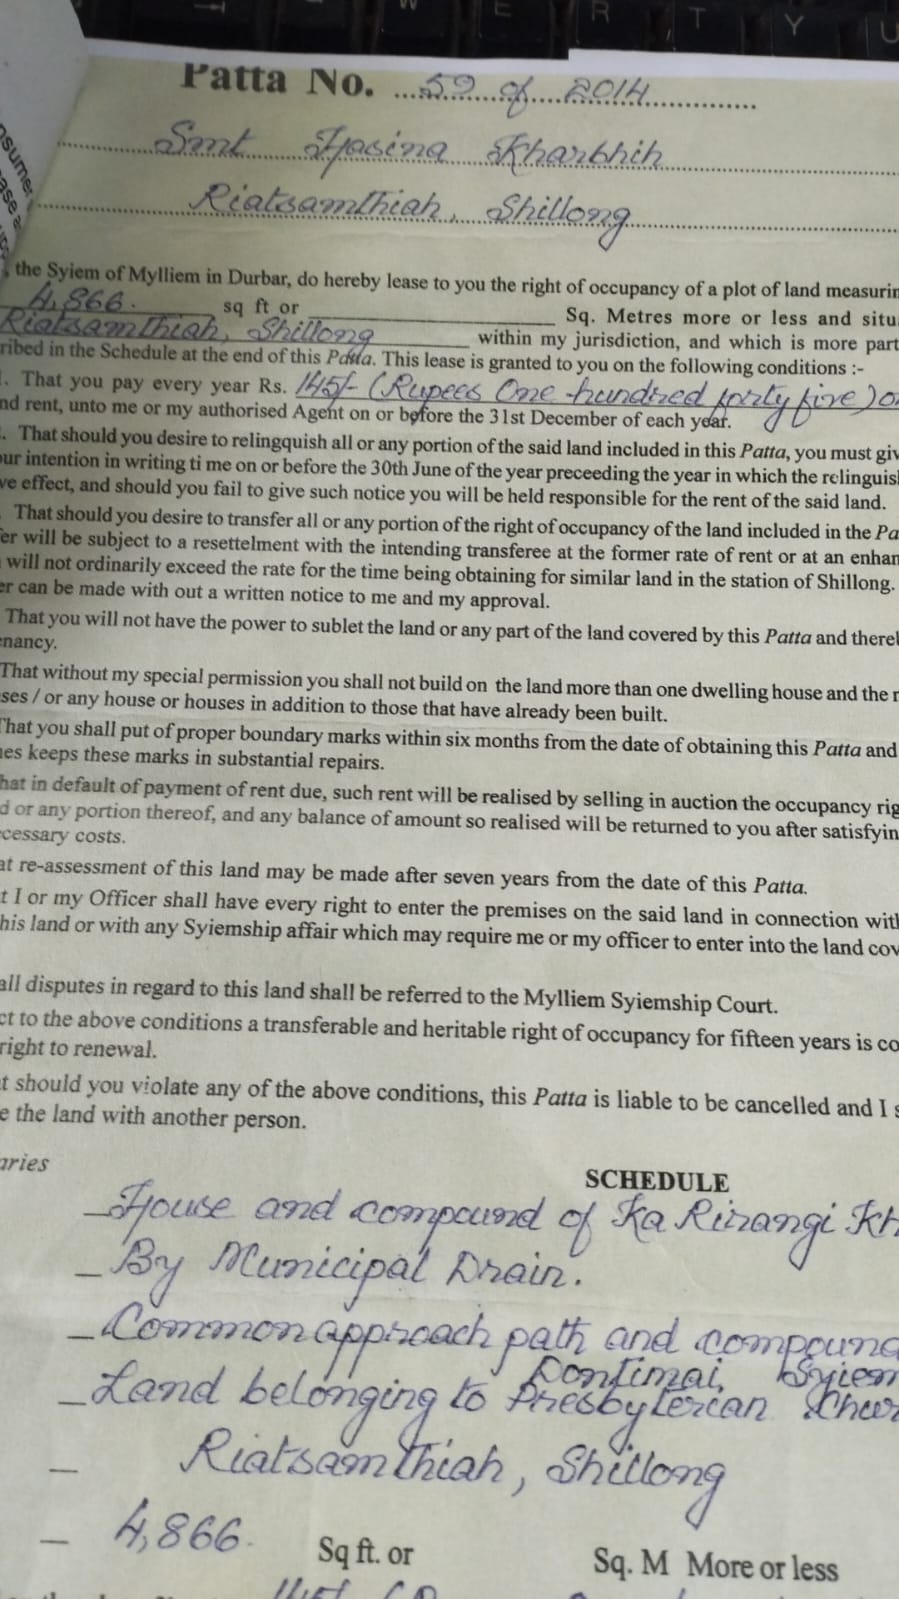 Patta No. ...59 of 2014
Smt Hasina Kharbhih
Riatsamthiah, Shillong
, the Syiem of Mylliem in Durbar, do hereby lease to you the right of occupancy of a plot of land measurin
4,866. sq ft or Sq. Metres more or less and situ
Riatsamthiah, Shillong within my jurisdiction, and which is more part
ribed in the Schedule at the end of this Patta. This lease is granted to you on the following conditions :-
. That you pay every year Rs. 145/- (Rupees One hundred forty five) o
nd rent, unto me or my authorised Agent on or before the 31st December of each year.
. That should you desire to relingquish all or any portion of the said land included in this Patta, you must giv
our intention in writing ti me on or before the 30th June of the year preceeding the year in which the relinguis
ve effect, and should you fail to give such notice you will be held responsible for the rent of the said land.
. That should you desire to transfer all or any portion of the right of occupancy of the land included in the Pa
er will be subject to a resettelment with the intending transferee at the former rate of rent or at an enhan
will not ordinarily exceed the rate for the time being obtaining for similar land in the station of Shillong.
er can be made with out a written notice to me and my approval.
That you will not have the power to sublet the land or any part of the land covered by this Patta and there
enancy.
That without my special permission you shall not build on the land more than one dwelling house and the r
ses / or any house or houses in addition to those that have already been built.
That you shall put of proper boundary marks within six months from the date of obtaining this Patta and
es keeps these marks in substantial repairs.
hat in default of payment of rent due, such rent will be realised by selling in auction the occupancy rig
d or any portion thereof, and any balance of amount so realised will be returned to you after satisfyin
cessary costs.
at re-assessment of this land may be made after seven years from the date of this Patta.
t I or my Officer shall have every right to enter the premises on the said land in connection wit
his land or with any Syiemship affair which may require me or my officer to enter into the land cov
all disputes in regard to this land shall be referred to the Mylliem Syiemship Court.
ct to the above conditions a transferable and heritable right of occupancy for fifteen years is co
right to renewal.
t should you violate any of the above conditions, this Patta is liable to be cancelled and I s
e the land with another person.
aries
SCHEDULE
House and compound of Ka Rirangi Kh
By Municipal Drain.
Common approach path and compound
Dontimai, Syiem
Land belonging to Presbyterian Chur
Riatsamthiah, Shillong
4,866. Sq ft. or Sq. M More or less